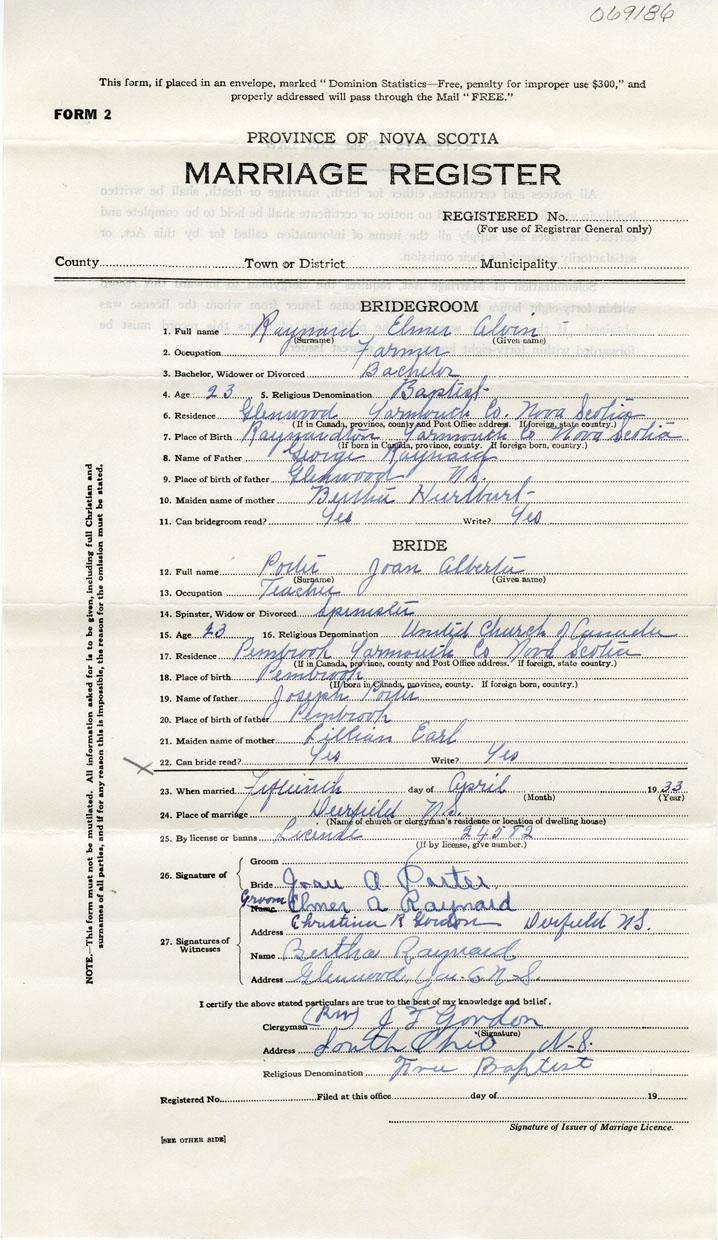 069186
This form, if placed in an envelope, marked "Dominion Statistics—Free, penalty for improper use $300," and
properly addressed will pass through the Mail "FREE."
FORM 2
PROVINCE OF NOVA SCOTIA
MARRIAGE REGISTER
REGISTERED No.
(For use of Registrar General only)
County Town or District Municipality
BRIDEGROOM
1. Full name Raynard Elmer Alvin
(Surname) (Given name)
2. Occupation Farmer
3. Bachelor, Widower or Divorced Bachelor
4. Age 23 5. Religious Denomination Baptist
6. Residence Glenwood Yarmouth Co. Nova Scotia
(If in Canada, province, county and Post Office address. If foreign, state country.)
7. Place of Birth Raynardton Yarmouth Co Nova Scotia
(If born in Canada, province, county. If foreign born, country.)
8. Name of Father George Raynard
9. Place of birth of father Glenwood N.S.
10. Maiden name of mother Bertha Hurlburt
11. Can bridegroom read? Yes Write? Yes
BRIDE
12. Full name Porter Joan Alberta
(Surname) (Given name)
13. Occupation Teacher
14. Spinster, Widow or Divorced Spinster
15. Age 23 16. Religious Denomination United Church of Canada
17. Residence Pembrook Yarmouth Co Nova Scotia
(If in Canada, province, county and Post Office address. If foreign, state country.)
18. Place of birth Pembrook
(If born in Canada, province, county. If foreign born, country.)
19. Name of father Joseph Porter
20. Place of birth of father Pembrook
21. Maiden name of mother Lillian Earl
22. Can bride read? Yes Write? Yes
23. When married Fifteenth day of April 1933
(Month) (Year)
24. Place of marriage Deerfield N.S.
(Name of church or clergyman's residence or location of dwelling house)
25. By license or banns License 24582
(If by license, give number.)
26. Signature of Groom
Bride Joan A Porter
Groom Name Elmer A Raynard
Address Christina R Gordon Deerfield N.S.
27. Signatures of Witnesses
Name Bertha Raynard
Address Glenwood, Yar. Co N.S.
I certify the above stated particulars are true to the best of my knowledge and belief.
Clergyman (Rev) J F Gordon
(Signature)
Address South Ohio N.S.
Religious Denomination Free Baptist
Registered No. Filed at this office day of 19
Signature of Issuer of Marriage Licence.
[SEE OTHER SIDE]
NOTE.—This form must not be mutilated. All information asked for is to be given, including full Christian and
surnames of all parties, and if for any reason this is impossible, the reason for the omission must be stated.